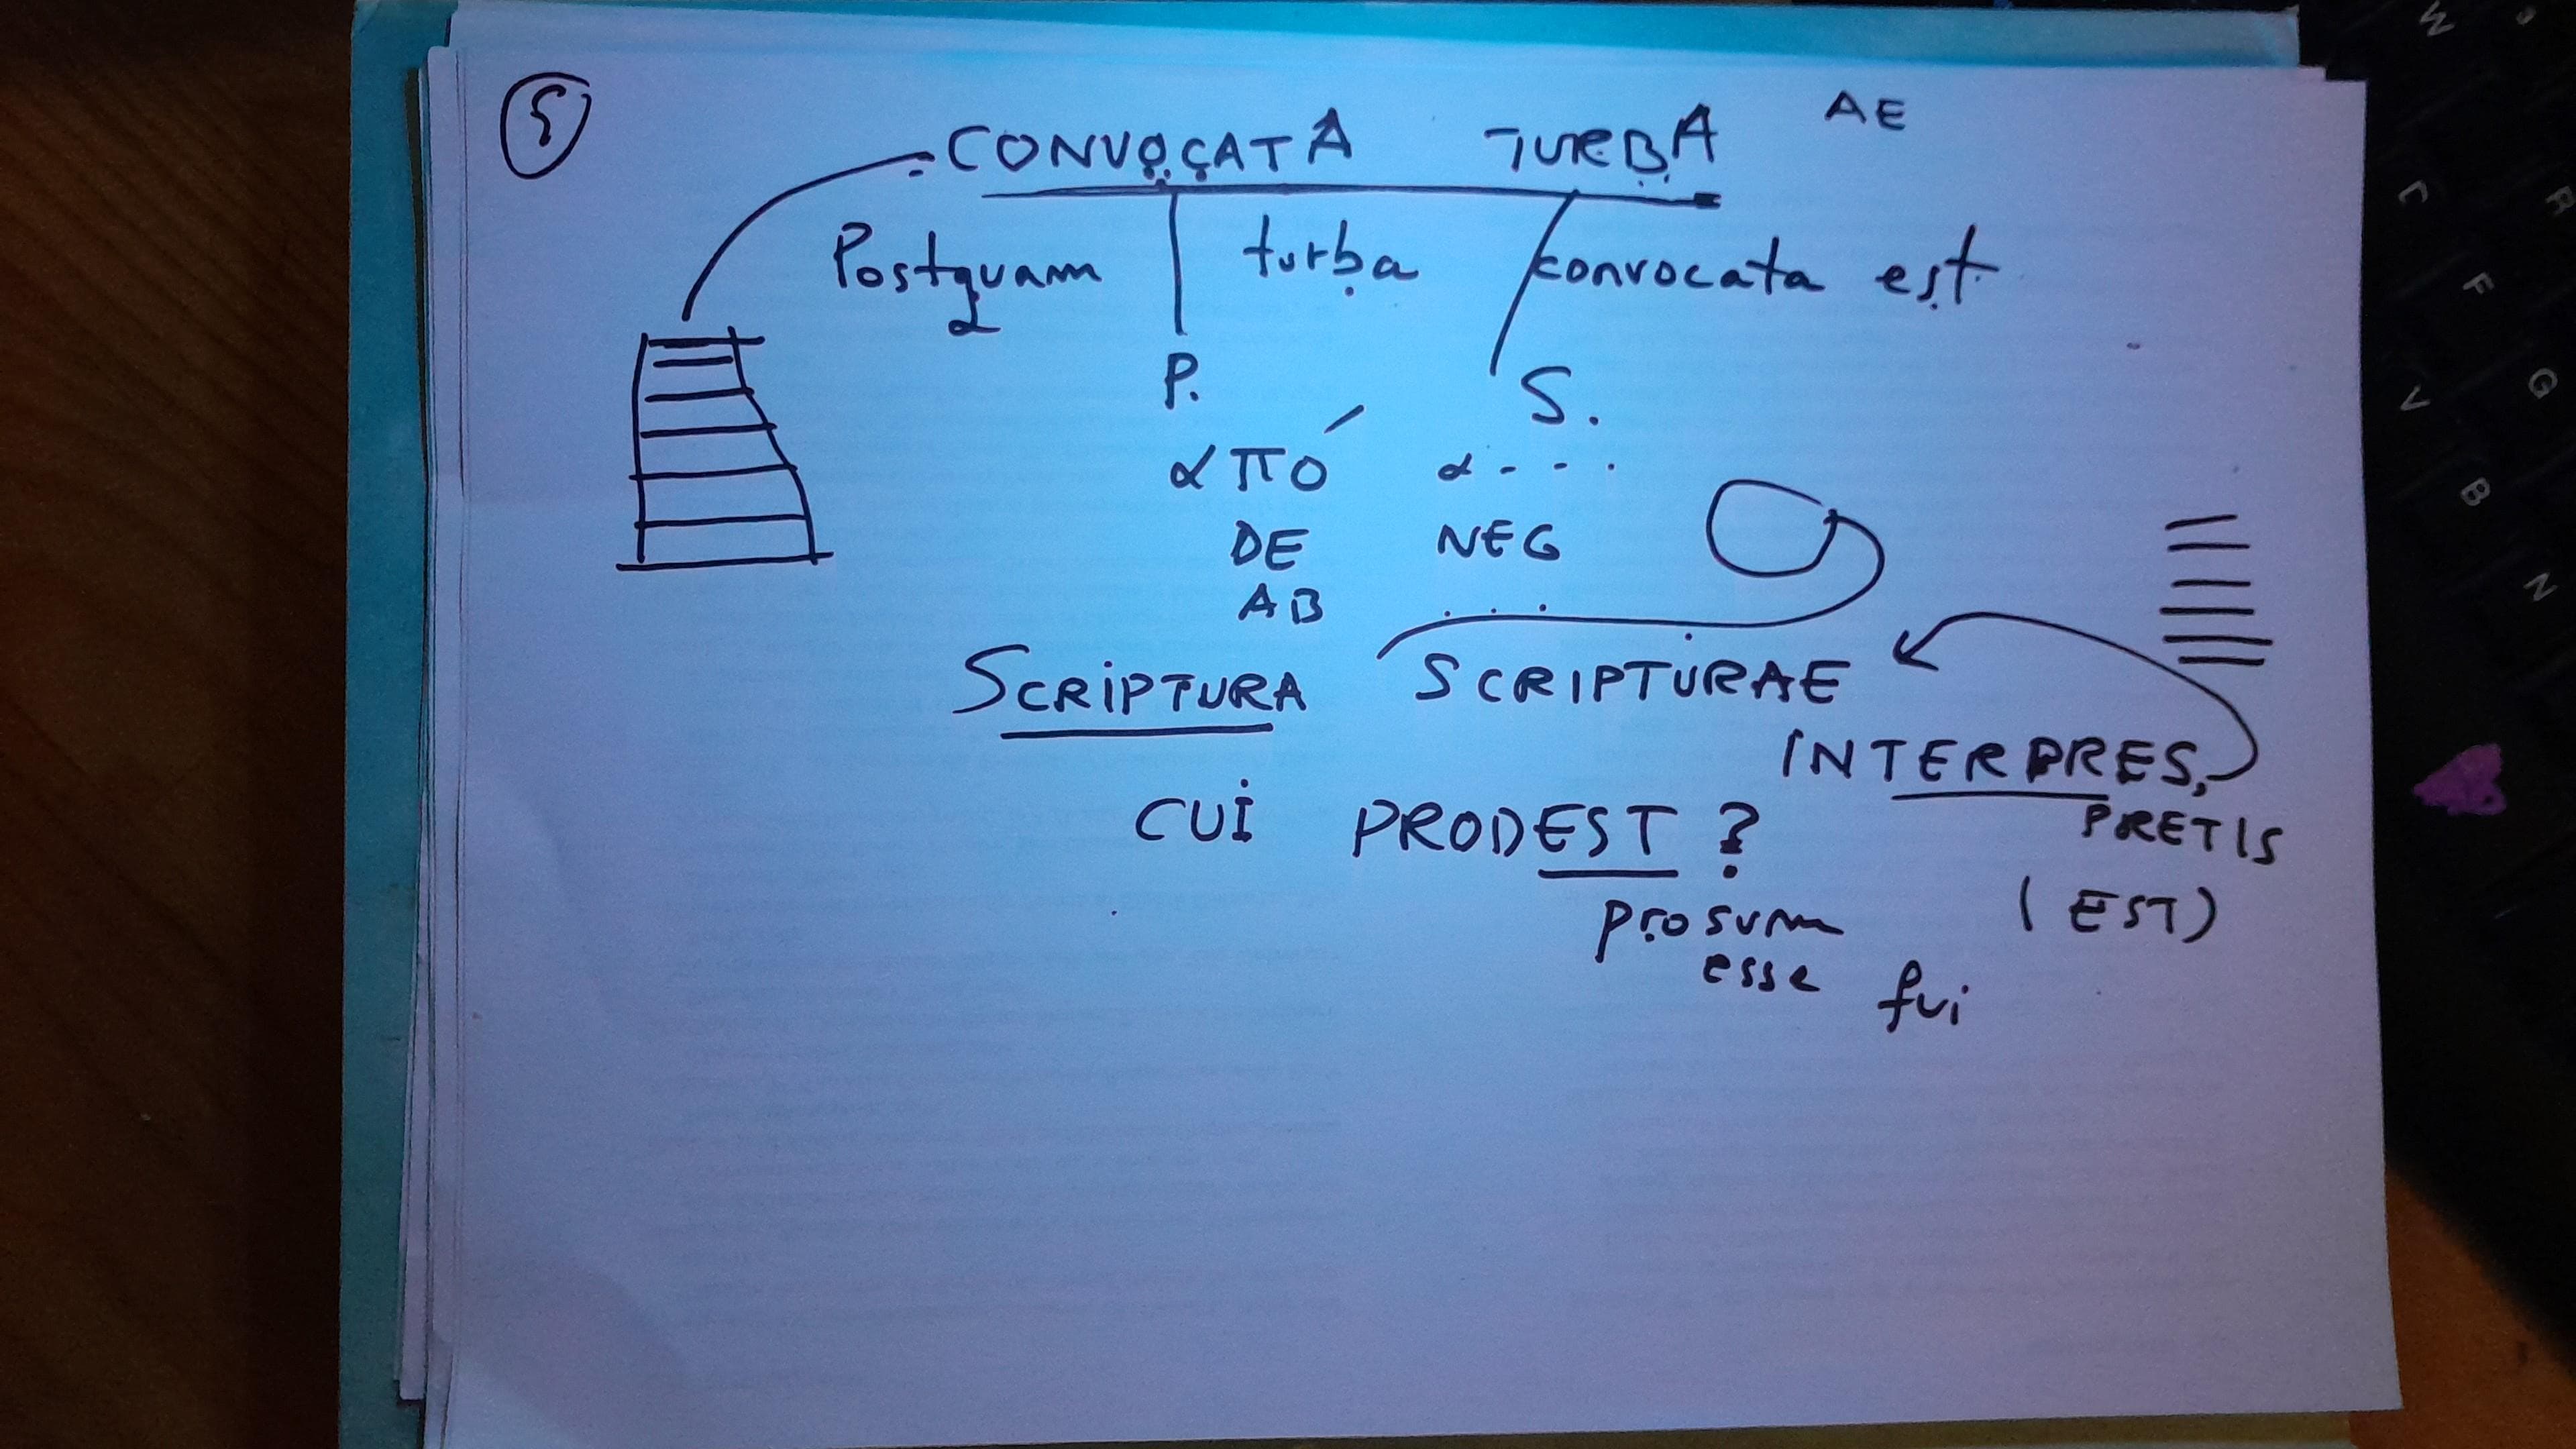 CONVOCATA TURBA AE
Postquam turba convocata est
P. S.
απο´ α - - .
DE NEG
AB . . .
SCRIPTURA SCRIPTURAE
INTERPRES,
PRETIS
CUI PRODEST ?
(EST)
prosum
esse fui